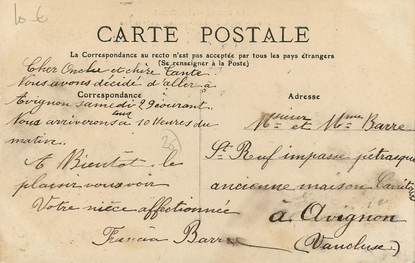 10 €
CARTE POSTALE
La Correspondance au recto n'est pas acceptée par tous les pays étrangers
(Se renseigner à la Poste)
Correspondance
Cher Oncle et chère Tante
Nous avons décidé d'aller à
Avignon samedi 29 courant
Nous arriverons à 10 heures du
matin.
A Bientôt le
plaisir vous voir
Votre nièce affectionnée
Francia Barre
20
Adresse
Monsieur et Mme Barre
St Ruf impasse pétrasque
ancienne maison
à Avignon
(Vaucluse)